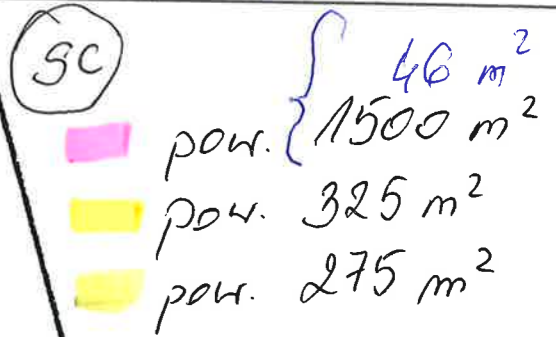 SC
46 m²
pow. 1500 m²
pow. 325 m²
pow. 275 m²